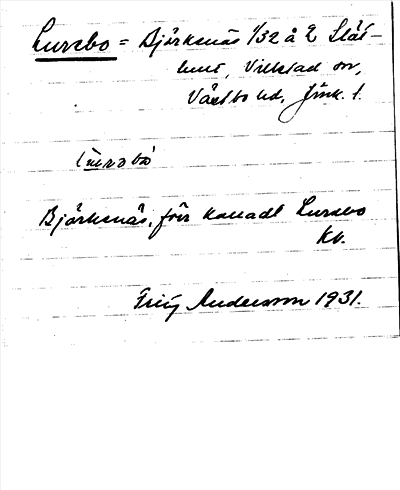 Lurebo = Björksnäs 1/32 å 2 Slät-
hult, Villstad sn,
Västbo hd, Jönk. l.
Björksnäs, förr kalladt Lurebo
Kb.
Andersson 1931.